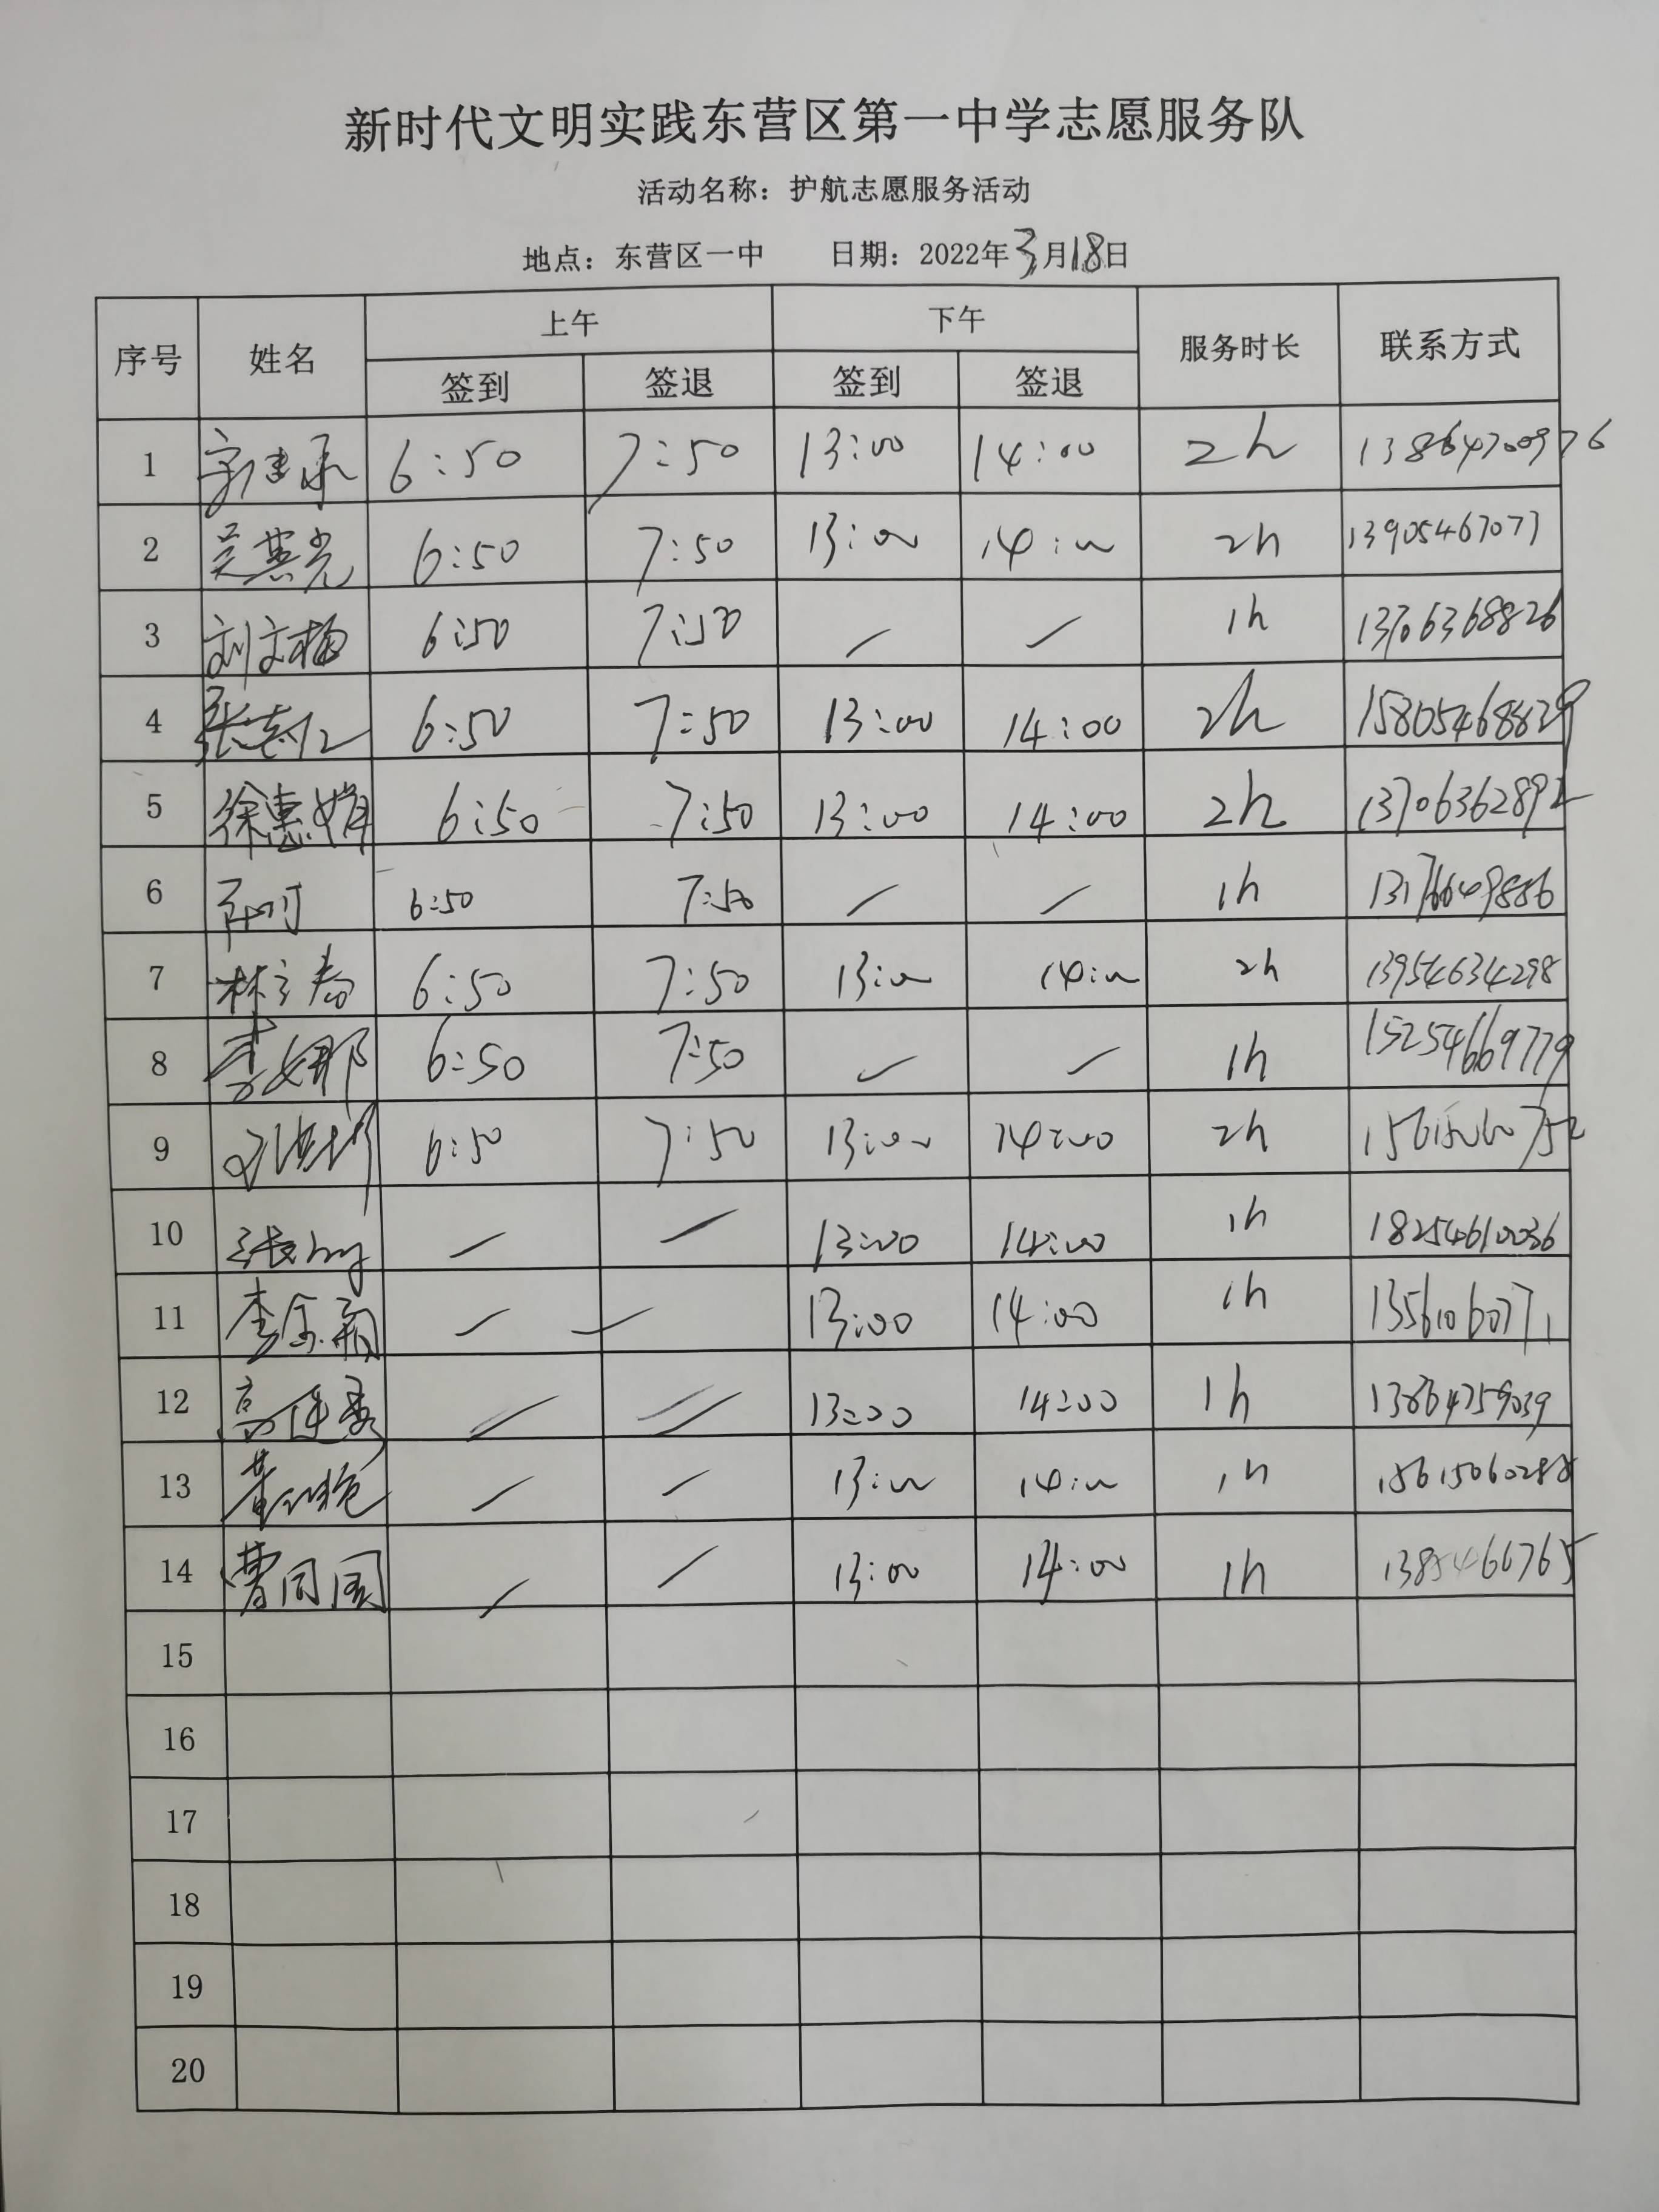 新时代文明实践东营区第一中学志愿服务队
活动名称：护航志愿服务活动
地点：东营区一中 日期：2022年3月18日
序号 姓名 上午 下午 服务时长 联系方式
签到 签退 签到 签退
1 6:50 7:50 13:00 14:00 2h 13864700976
2 6:50 7:50 13:00 14:00 2h 13905467077
3 刘文梅 6:50 7:50 / / 1h 13706368826
4 6:50 7:50 13:00 14:00 2h 15805468829
5 徐惠娟 6:50 7:50 13:00 14:00 2h 13706362892
6 6:50 7:50 / / 1h 13176649886
7 6:50 7:50 13:00 14:00 2h 13954634298
8 李娜 6:50 7:50 / / 1h 15254669779
9 6:50 7:50 13:00 14:00 2h 15615060752
10 / / 13:00 14:00 1h 18254610036
11 / / 13:00 14:00 1h 13561060771
12 / / 13:00 14:00 1h 13864759039
13 / / 13:00 14:00 1h 15615060288
14 曹同国 / / 13:00 14:00 1h 13854666765
15
16
17
18
19
20